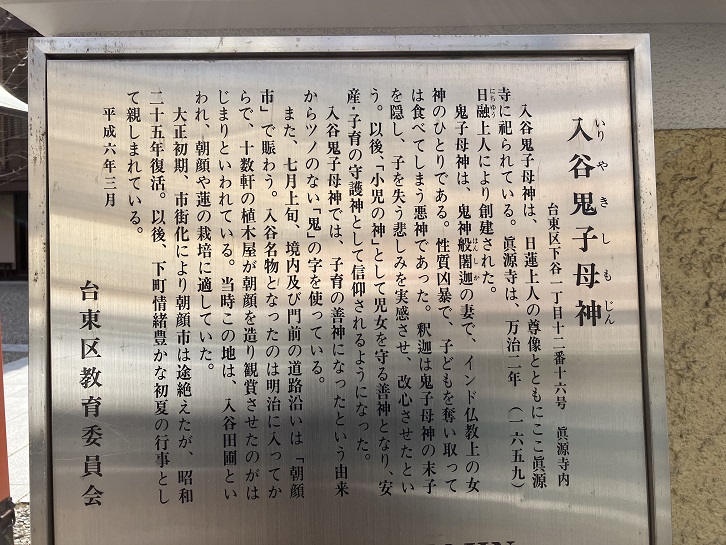 入谷鬼子母神
いりやきしもじん
台東区下谷一丁目十二番十六号 眞源寺内
入谷鬼子母神は、日蓮上人の尊像とともにここ眞源
寺に祀られている。眞源寺は、万治二年（一六五九）
日融上人により創建された。
にちゆう
鬼子母神は、鬼神般闍迦の妻で、インド仏教上の女
はんしか
神のひとりである。性質凶暴で、子どもを奪い取って
は食べてしまう悪神であった。釈迦は鬼子母神の末子
を隠し、子を失う悲しみを実感させ、改心させたとい
う。以後、「小児の神」として児女を守る善神となり、安
産・子育の守護神として信仰されるようになった。
入谷鬼子母神では、子育の善神になったという由来
からツノのない「鬼」の字を使っている。
また、七月上旬、境内及び門前の道路沿いは「朝顔
市」で賑わう。入谷名物となったのは明治に入ってか
らで、十数軒の植木屋が朝顔を造り観賞させたのがは
じまりといわれている。当時この地は、入谷田圃とい
われ、朝顔や蓮の栽培に適していた。
大正初期、市街化により朝顔市は途絶えたが、昭和
二十五年復活。以後、下町情緒豊かな初夏の行事とし
て親しまれている。
平成六年三月
台東区教育委員会